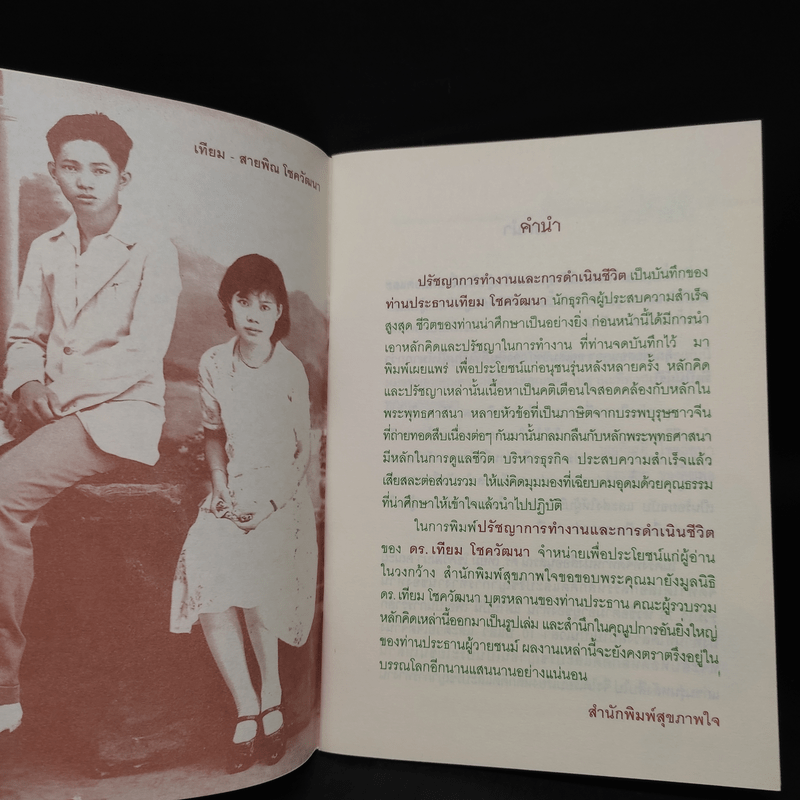 เทียม - สายพิณ โชควัฒนา
คำนำ
ปรัชญาการทำงานและการดำเนินชีวิต เป็นบันทึกของ
ท่านประธานเทียม โชควัฒนา นักธุรกิจผู้ประสบความสำเร็จ
สูงสุด ชีวิตของท่านน่าศึกษาเป็นอย่างยิ่ง ก่อนหน้านี้ได้มีการนำ
เอาหลักคิดและปรัชญาในการทำงาน ที่ท่านจดบันทึกไว้ มา
พิมพ์เผยแพร่ เพื่อประโยชน์แก่อนุชนรุ่นหลังหลายครั้ง หลักคิด
และปรัชญาเหล่านั้นเนื้อหาเป็นคติเตือนใจสอดคล้องกับหลักใน
พระพุทธศาสนา หลายหัวข้อที่เป็นภาษิตจากบรรพบุรุษชาวจีน
ที่ถ่ายทอดสืบเนื่องต่อๆ กันมานั้นกลมกลืนกับหลักพระพุทธศาสนา
มีหลักในการดูแลชีวิต บริหารธุรกิจ ประสบความสำเร็จแล้ว
เสียสละต่อส่วนรวม ให้แง่คิดมุมมองที่เฉียบคมอุดมด้วยคุณธรรม
ที่น่าศึกษาให้เข้าใจแล้วนำไปปฏิบัติ
ในการพิมพ์ปรัชญาการทำงานและการดำเนินชีวิต
ของ ดร. เทียม โชควัฒนา จำหน่ายเพื่อประโยชน์แก่ผู้อ่าน
ในวงกว้าง สำนักพิมพ์สุขภาพใจขอขอบพระคุณมายังมูลนิธิ
ดร. เทียม โชควัฒนา บุตรหลานของท่านประธาน คณะผู้รวบรวม
หลักคิดเหล่านี้ออกมาเป็นรูปเล่ม และสำนึกในคุณูปการอันยิ่งใหญ่
ของท่านประธานผู้วายชนม์ ผลงานเหล่านี้จะยังคงตราตรึงอยู่ใน
บรรณโลกอีกนานแสนนานอย่างแน่นอน
สำนักพิมพ์สุขภาพใจ